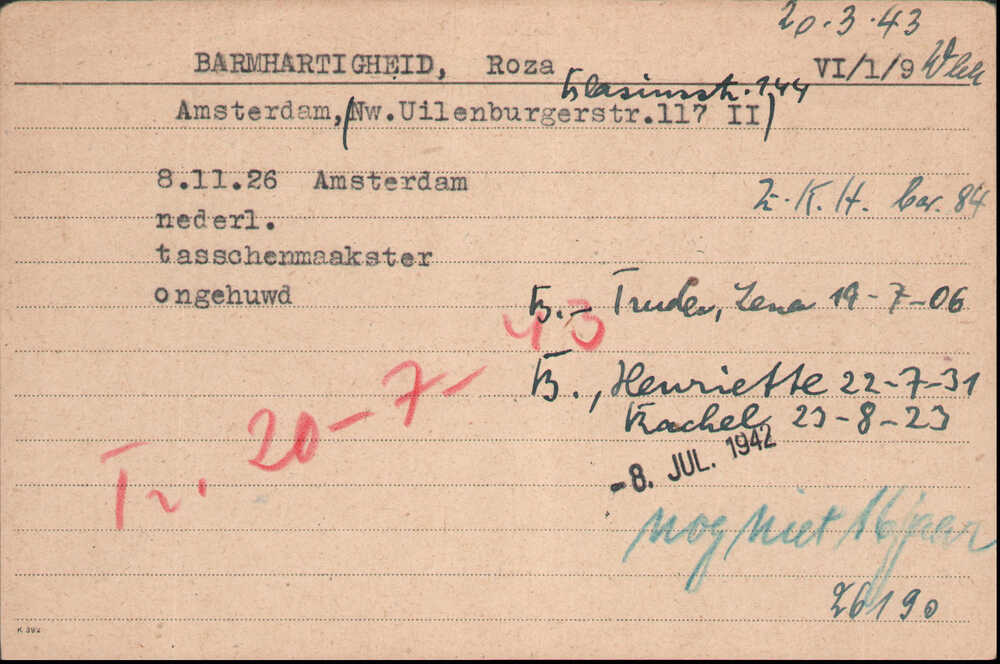 20.3.43
BARMHARTIGHEID, Roza VI/1/9
Blasiusstr. 144
Amsterdam, (Nw.Uilenburgerstr.117 II)
8.11.26 Amsterdam
Z.K.H. bar. 84
nederl.
tasschenmaakster
ongehuwd
B.- Truder, Lena 19-7-06
B., Henriette 22-7-31
Rachel 23-8-23
Tr. 20-7-43
-8. JUL. 1942
nog niet 16 jaar
26190
K 392